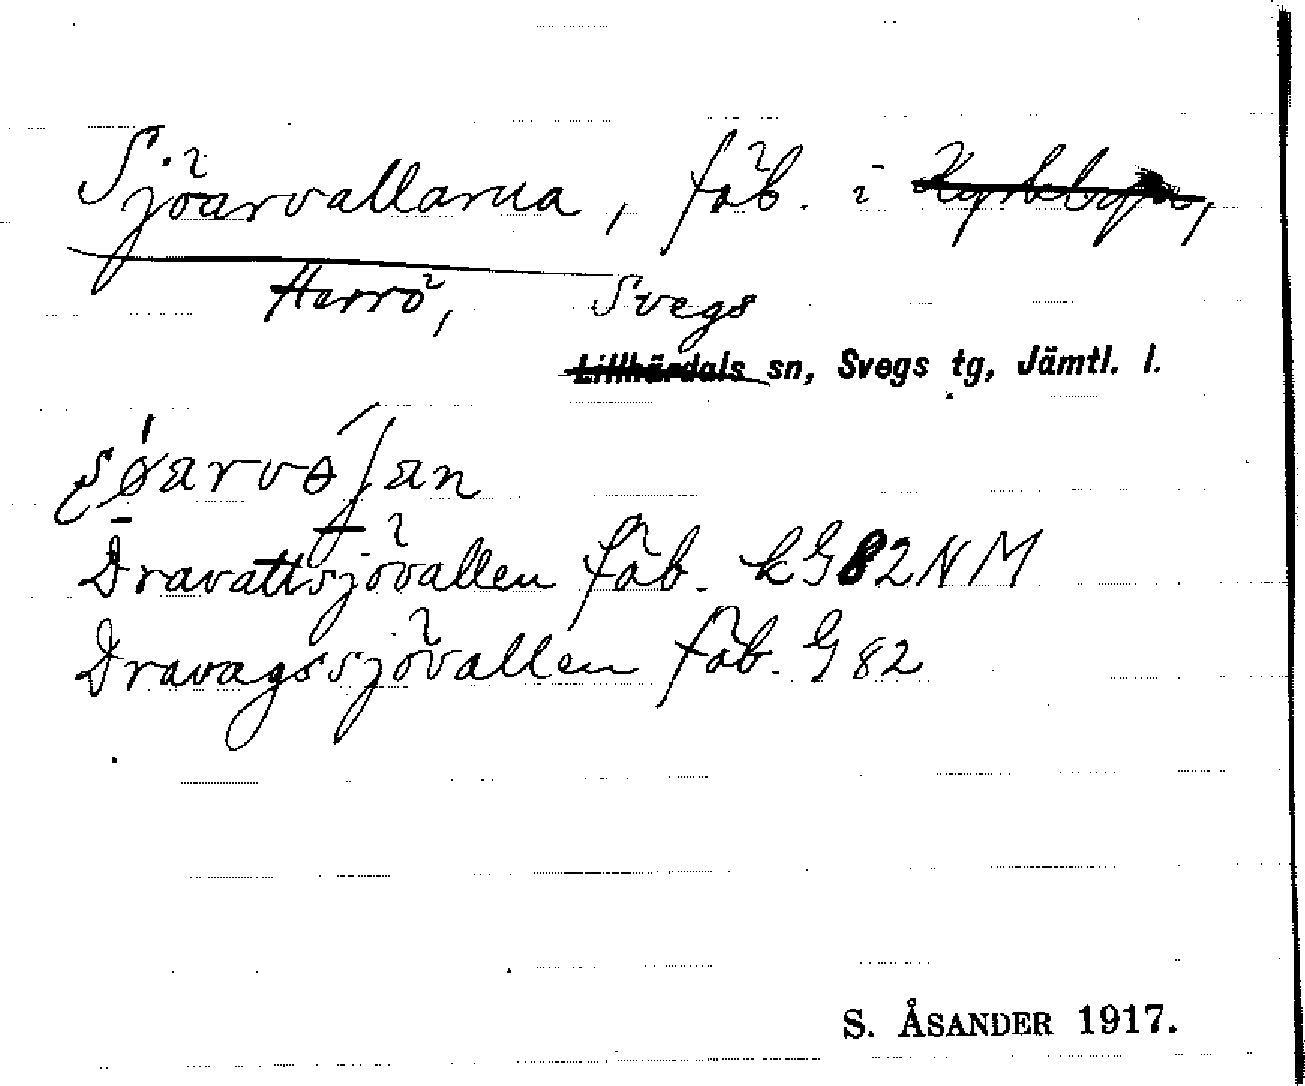 Sjöarvallarna, fäb. i Kyrkbyn,
Herrö, Svegs
Lillhärdals sn, Svegs tg, Jämtl. l.
Dravattsjövallen fäb. kG82NM
Dravagssjövallen fäb. G82
S. ÅSANDER 1917.